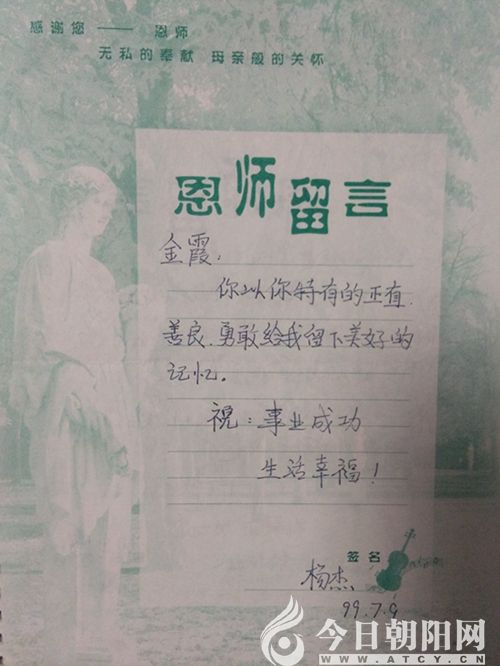 感谢您——恩师
无私的奉献 母亲般的关怀
恩师留言
金霞:
你以你特有的正直、
善良、勇敢给我留下美好的
记忆。
祝:事业成功
生活幸福!
签名
杨杰
99.7.9
今日朝阳网
WWW.ATCY.CN